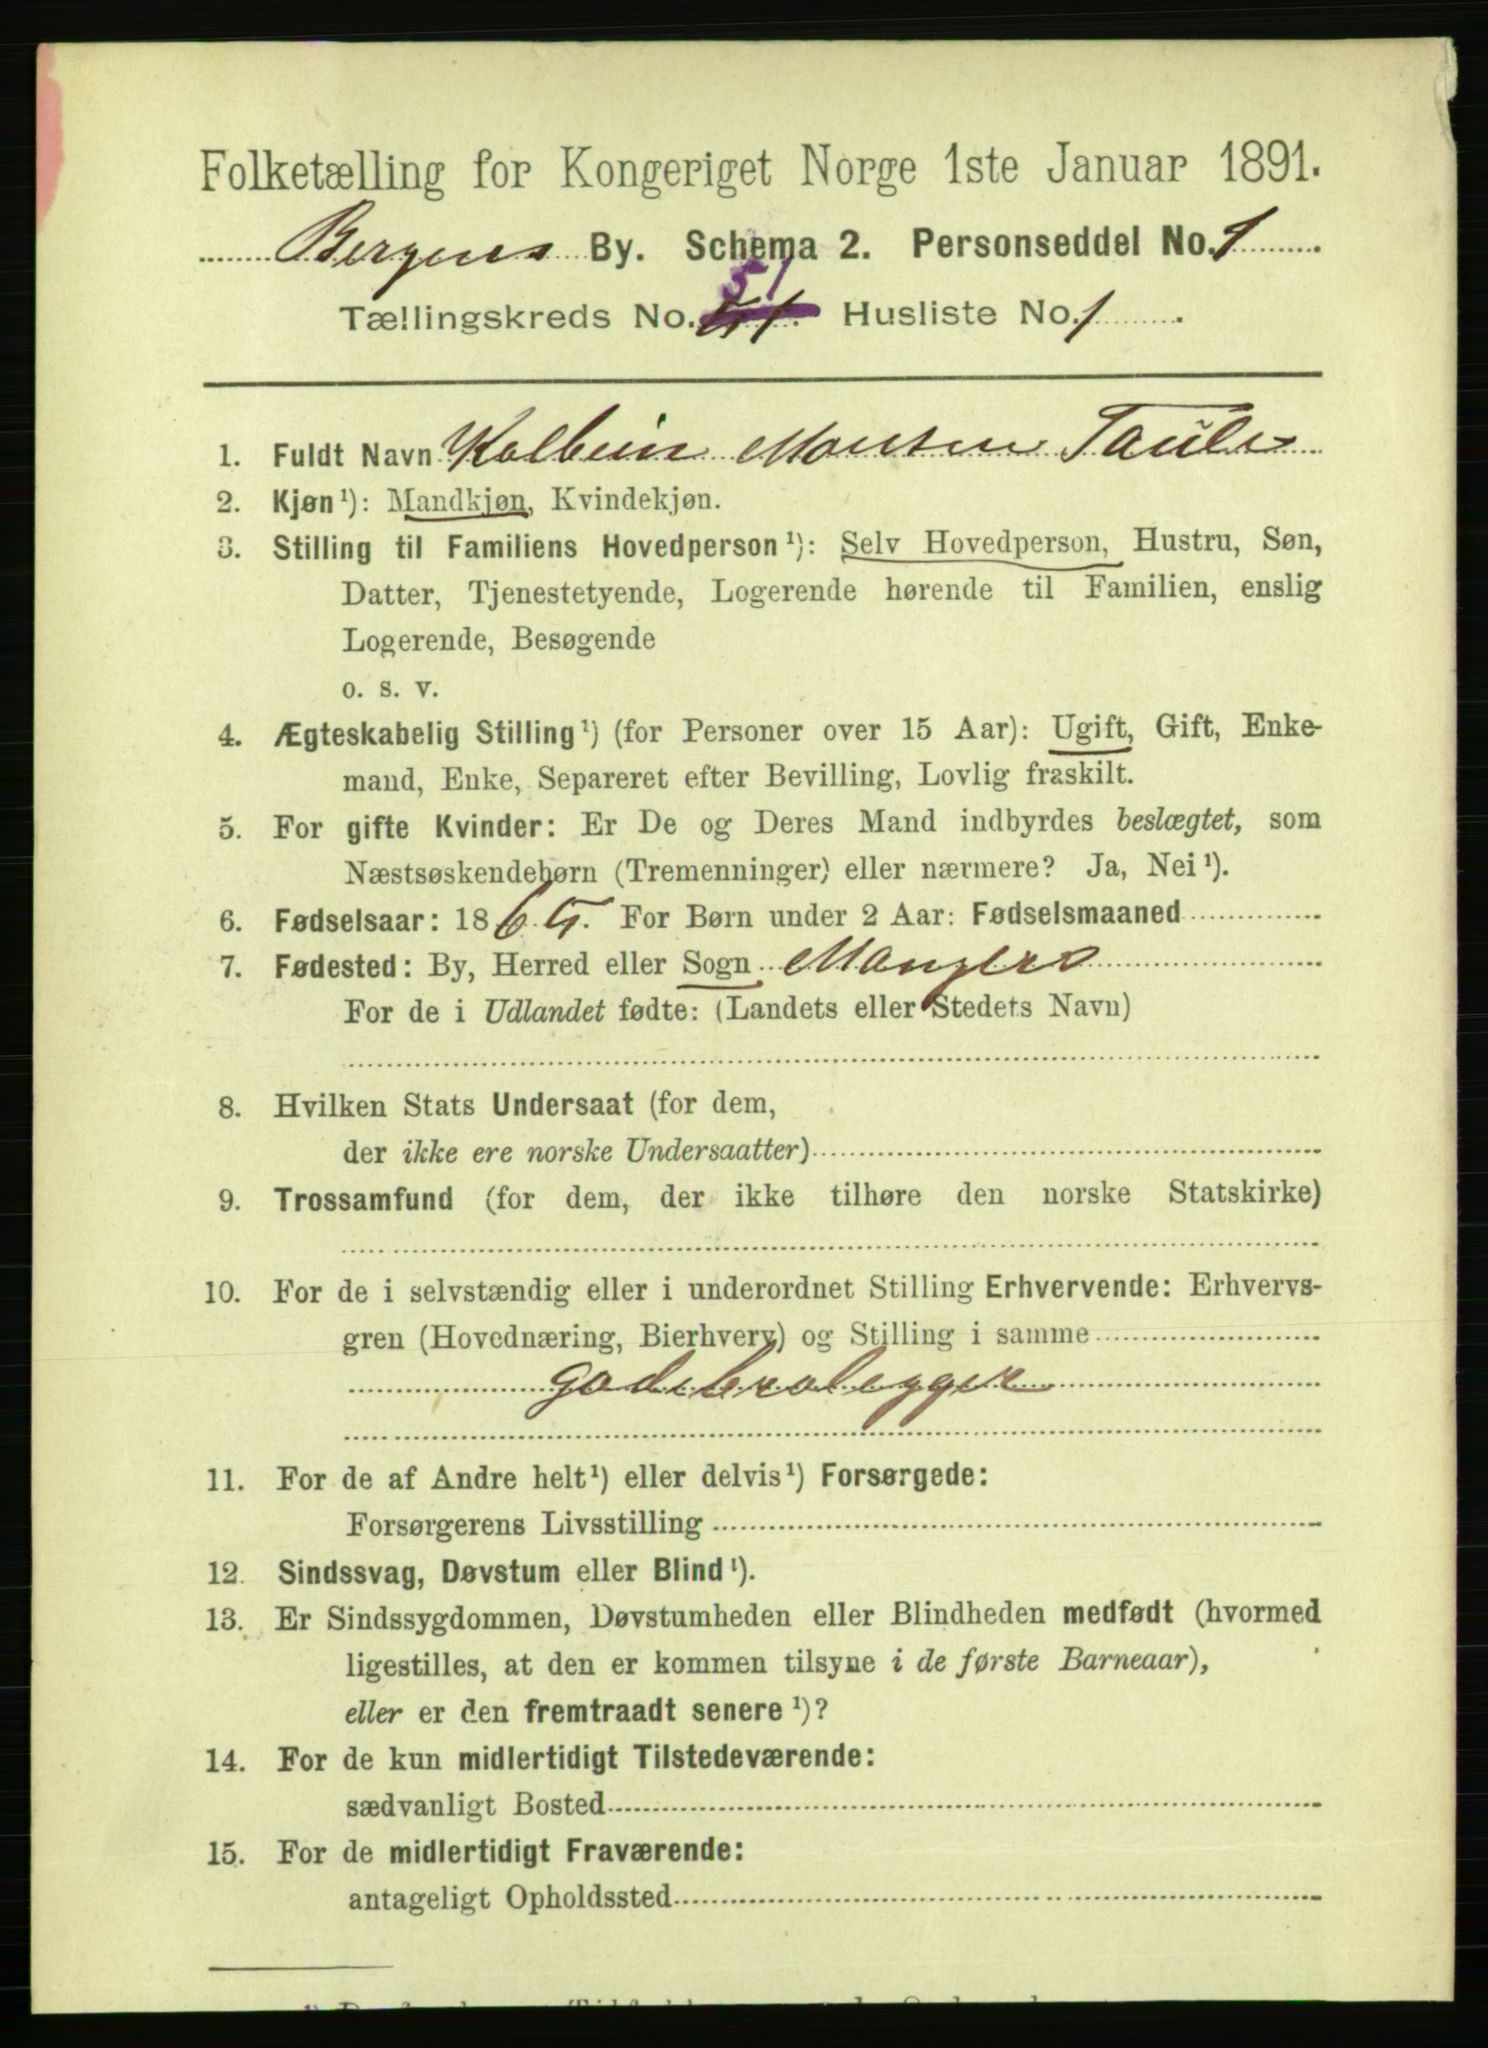 Folketælling for Kongeriget Norge 1ste Januar 1891.
Bergens By. Schema 2. Personseddel No. 1
51
Tællingskreds No. Husliste No. 1.
1. Fuldt Navn Kolbein Monsen Taule
2. Kjøn¹): Mandkjøn, Kvindekjøn.
3. Stilling til Familiens Hovedperson¹): Selv Hovedperson, Hustru, Søn,
Datter, Tjenestetyende, Logerende hørende til Familien, enslig
Logerende, Besøgende
o. s. v.
4. Ægteskabelig Stilling¹) (for Personer over 15 Aar): Ugift, Gift, Enke-
mand, Enke, Separeret efter Bevilling, Lovlig fraskilt.
5. For gifte Kvinder: Er De og Deres Mand indbyrdes beslægtet, som
Næstsøskendebørn (Tremenninger) eller nærmere? Ja, Nei¹).
6. Fødselsaar: 1865. For Børn under 2 Aar: Fødselsmaaned
7. Fødested: By, Herred eller Sogn Mangers
For de i Udlandet fødte: (Landets eller Stedets Navn)
8. Hvilken Stats Undersaat (for dem,
der ikke ere norske Undersaatter)
9. Trossamfund (for dem, der ikke tilhøre den norske Statskirke)
10. For de i selvstændig eller i underordnet Stilling Erhvervende: Erhvervs-
gren (Hovednæring, Bierhverv) og Stilling i samme
gadebrolegger
11. For de af Andre helt¹) eller delvis¹) Forsørgede:
Forsørgerens Livsstilling
12. Sindssvag, Døvstum eller Blind¹).
13. Er Sindssygdommen, Døvstumheden eller Blindheden medfødt (hvormed
ligestilles, at den er kommen tilsyne i de første Barneaar),
eller er den fremtraadt senere¹)?
14. For de kun midlertidigt Tilstedeværende:
sædvanligt Bosted
15. For de midlertidigt Fraværende:
antageligt Opholdssted